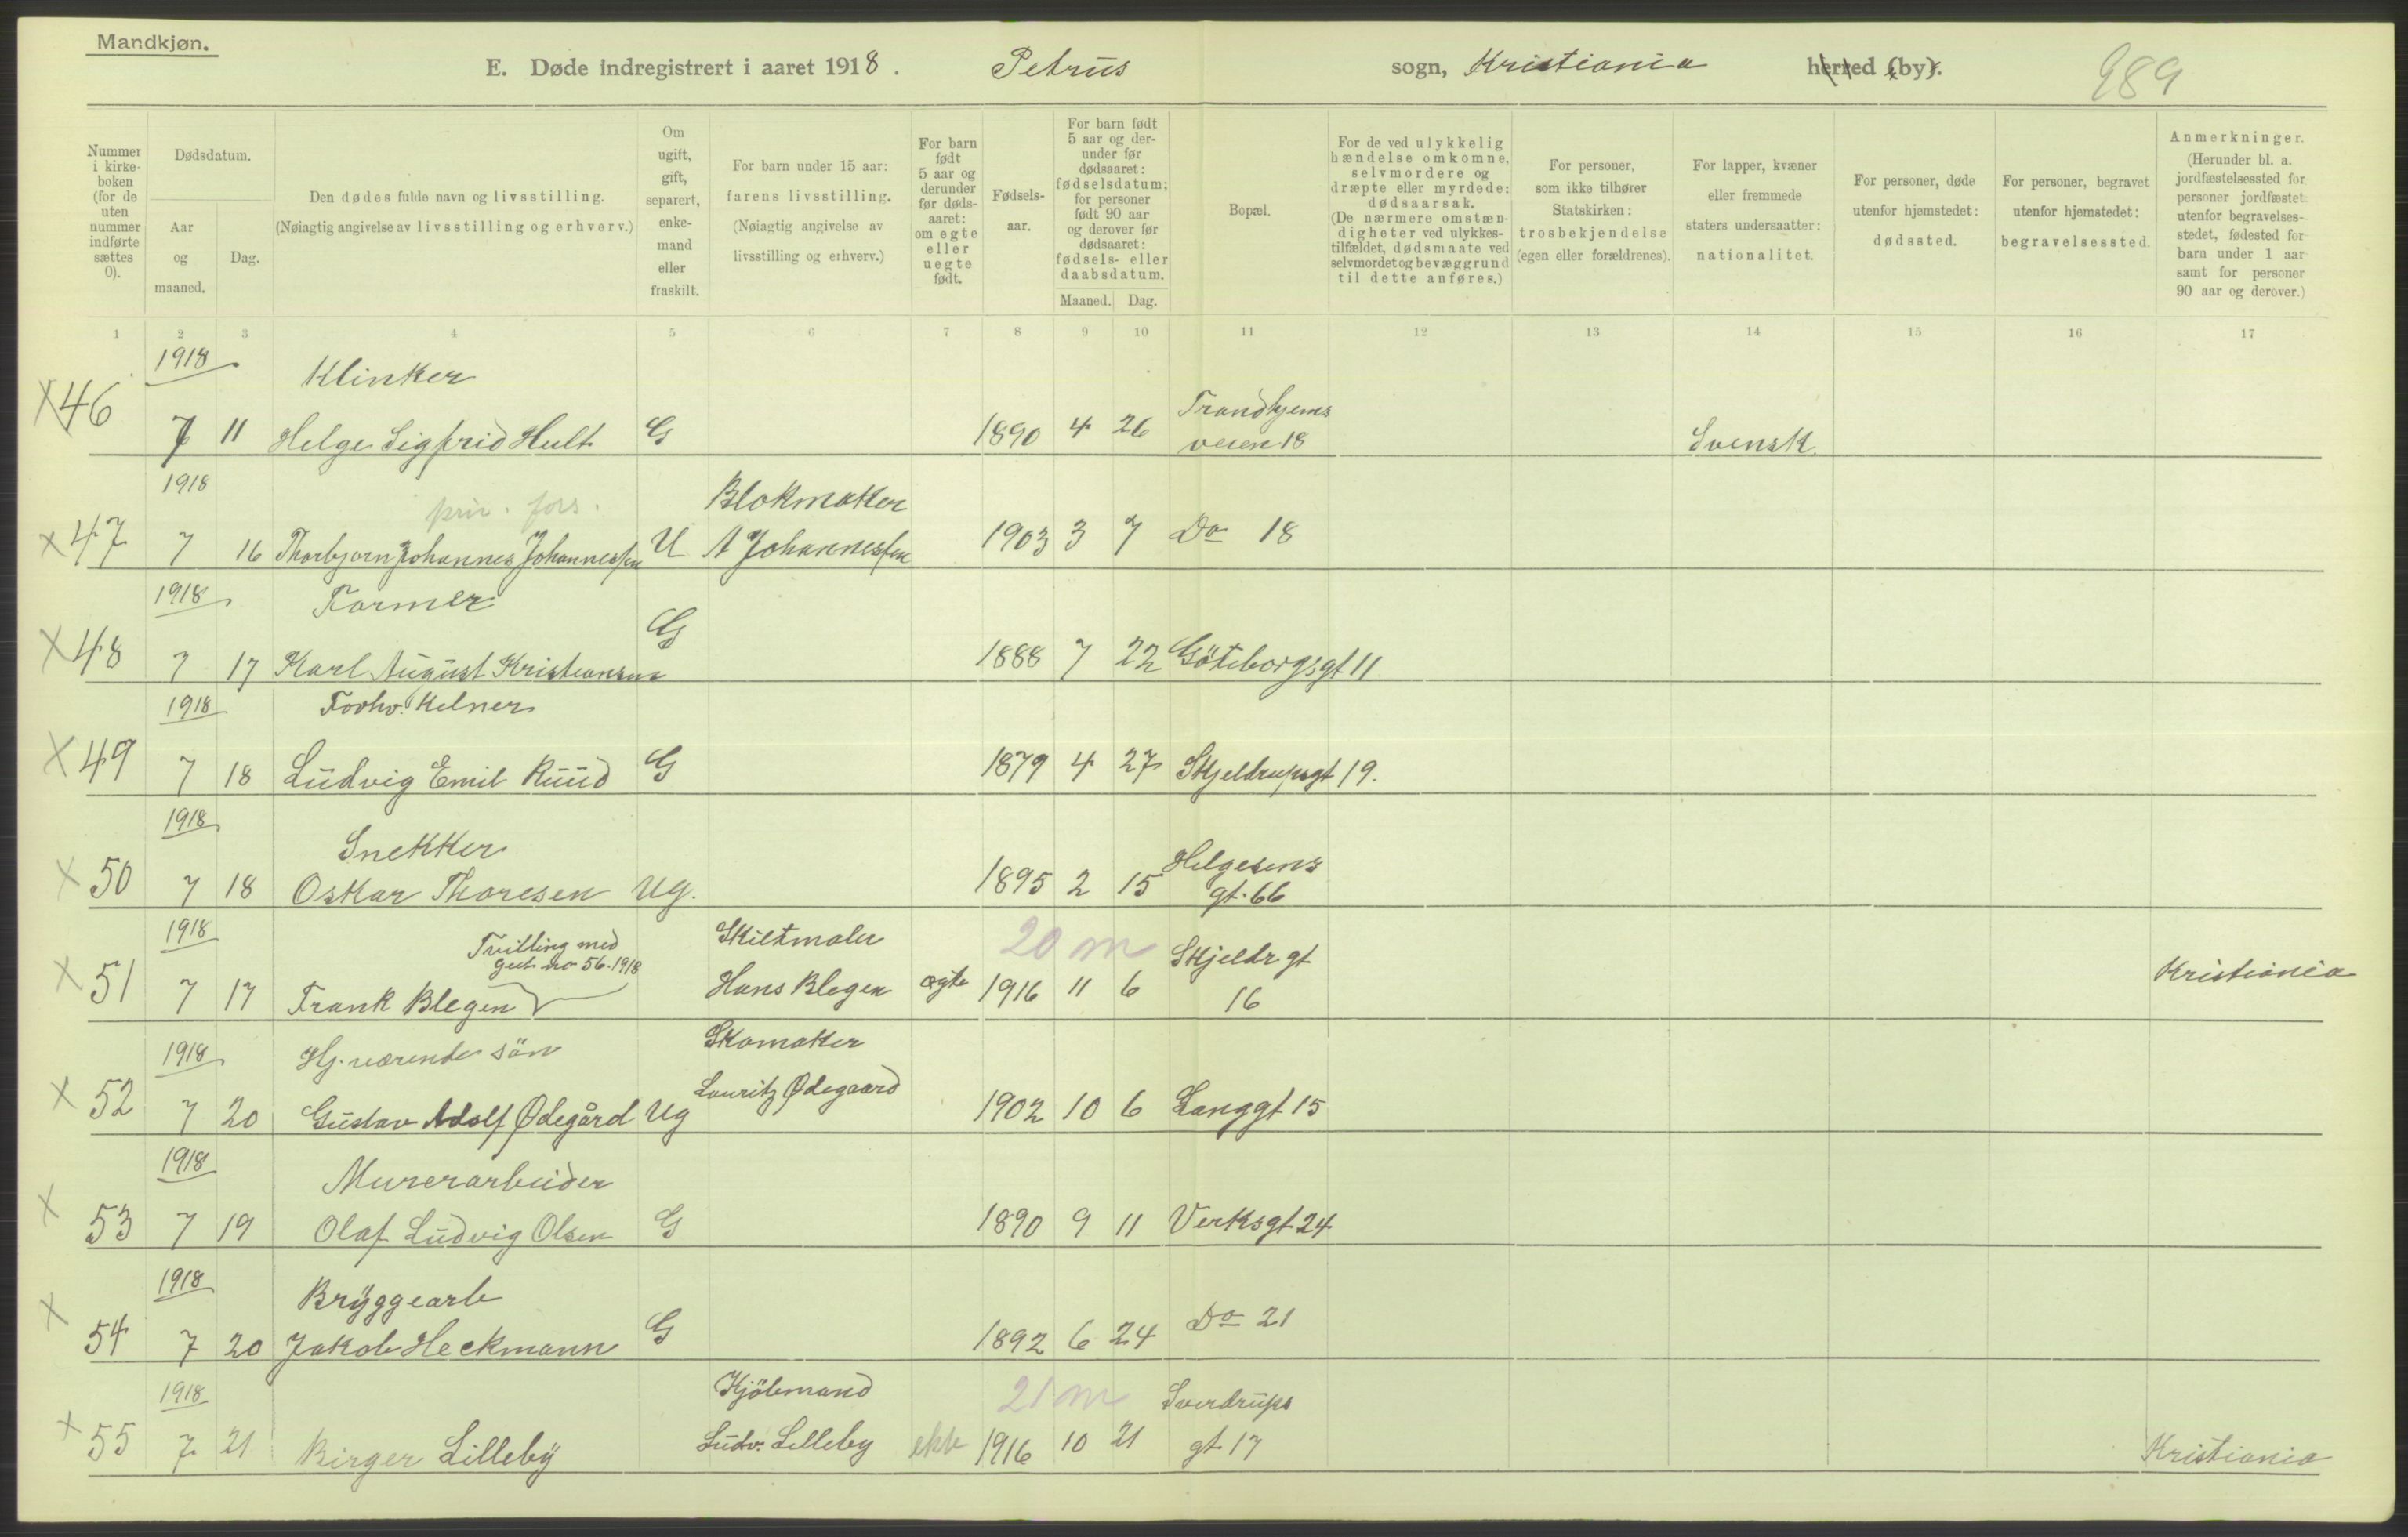 Mandkjøn.
E. Døde indregistrert i aaret 1918. Petrus sogn, Kristiania herred (by). 989
Nummer i kirke-boken (for de uten nummer indførte sættes 0).
Dødsdatum.
Aar og maaned.
Dag.
Den dødes fulde navn og livsstilling.
(Nøiagtig angivelse av livsstilling og erhverv.)
Om ugift, gift, separert, enke-mand eller fraskilt.
For barn under 15 aar: farens livsstilling.
(Nøiagtig angivelse av livsstilling og erhverv.)
For barn født 5 aar og derunder før døds-aaret: om egte eller uegte født.
Fødsels-aar.
For barn født 5 aar og der-under før dødsaaret: fødselsdatum; for personer født 90 aar og derover før dødsaaret: fødsels- eller daabsdatum.
Maaned. Dag.
Bopæl.
For de ved ulykkelig hændelse omkomne, selvmordere og dræpte eller myrdede: dødsaarsak.
(De nærmere omstæn-digheter ved ulykkes-tilfældet, dødsmaate ved selvmordet og bevæggrund til dette anføres.)
For personer, som ikke tilhører Statskirken: trosbekjendelse (egen eller forældrenes).
For lapper, kvæner eller fremmede staters undersaatter: nationalitet.
For personer, døde utenfor hjemstedet: dødssted.
For personer, begravet utenfor hjemstedet: begravelsessted.
Anmerkninger.
(Herunder bl. a. jordfæstelsessted for personer jordfæstet utenfor begravelses-stedet, fødested for barn under 1 aar samt for personer 90 aar og derover.)
1 2 3 4 5 6 7 8 9 10 11 12 13 14 15 16 17
1918 Klinker Trondhjems
x 46 7 11 Helge Sigfrid Hult G 1890 4 26 veien 18 Svensk
1918 priv. fors. Blokmaker
x 47 7 16 Thorbjørn Johannes Johannessen U A Johannessen 1903 3 7 Do 18
1918 Formер
x 48 7 17 Karl August Kristiansen G 1888 7 22 Göteborgsgt 11
1918 Forhv. Kelner
x 49 7 18 Ludvig Emil Ruud G 1879 4 27 Skjeldrupsgt 19.
1918 Snekker Helgesens
x 50 7 18 Oskar Thoresen Ug. 1895 2 15 gt. 66
1918 Tvilling med Skiltmaler 20 m Skjeldr gt
gut no 56-1918 Kristiania
x 51 7 17 Frank Blegen Hans Blegen egte 1916 11 6 16
1918 Hj. værende sön Skomaker
x 52 7 20 Gustav Adolf Ødegård Ug Lauritz Ødegaard 1902 10 6 Langgt 15
1918 Murerarbeider
x 53 7 19 Olaf Ludvig Olsen G 1890 9 11 Verksgt 24
1918 Bryggearb
x 54 7 20 Jakob Heckmann G 1892 6 24 Do 21
1918 Kjölmand 21 m Sverdrups
x 55 7 21 Birger Lilleby Ludv. Lilleby ekte 1916 10 21 gt 17 Kristiania